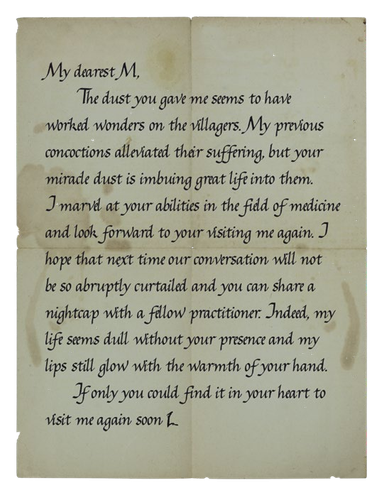 My dearest M,
The dust you gave me seems to have
worked wonders on the villagers. My previous
concoctions alleviated their suffering, but your
miracle dust is imbuing great life into them.
I marvel at your abilities in the field of medicine
and look forward to your visiting me again. I
hope that next time our conversation will not
be so abruptly curtailed and you can share a
nightcap with a fellow practitioner. Indeed, my
life seems dull without your presence and my
lips still glow with the warmth of your hand.
If only you could find it in your heart to
visit me again soon L